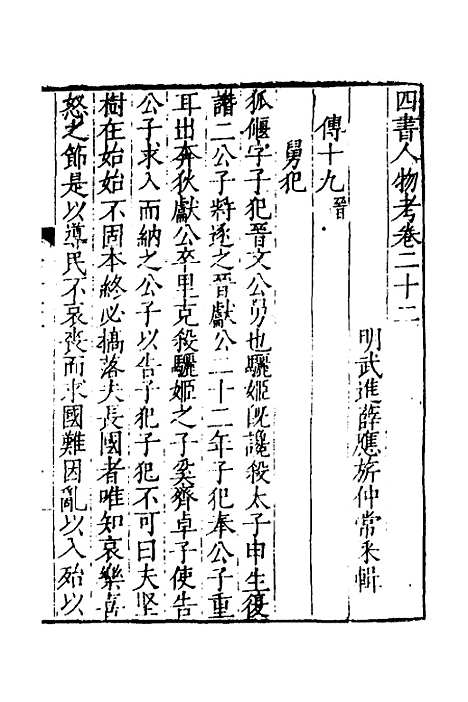 四書人物考卷二十二
明武進薛應旂仲常采輯
傳十九晉
舅犯
狐偃字子犯晉文公舅也驪姬既讒殺太子申生復
譖二公子將逐之晉獻公二十二年子犯奉公子重
耳出奔狄獻公卒里克殺驪姬之子奚齊卓子使告
公子求入而納之公子以告子犯子犯不可曰夫堅
樹在始始不固本終必槁落夫長國者唯知哀樂喜
怒之節是以導民不哀喪而求國難因亂以入殆以